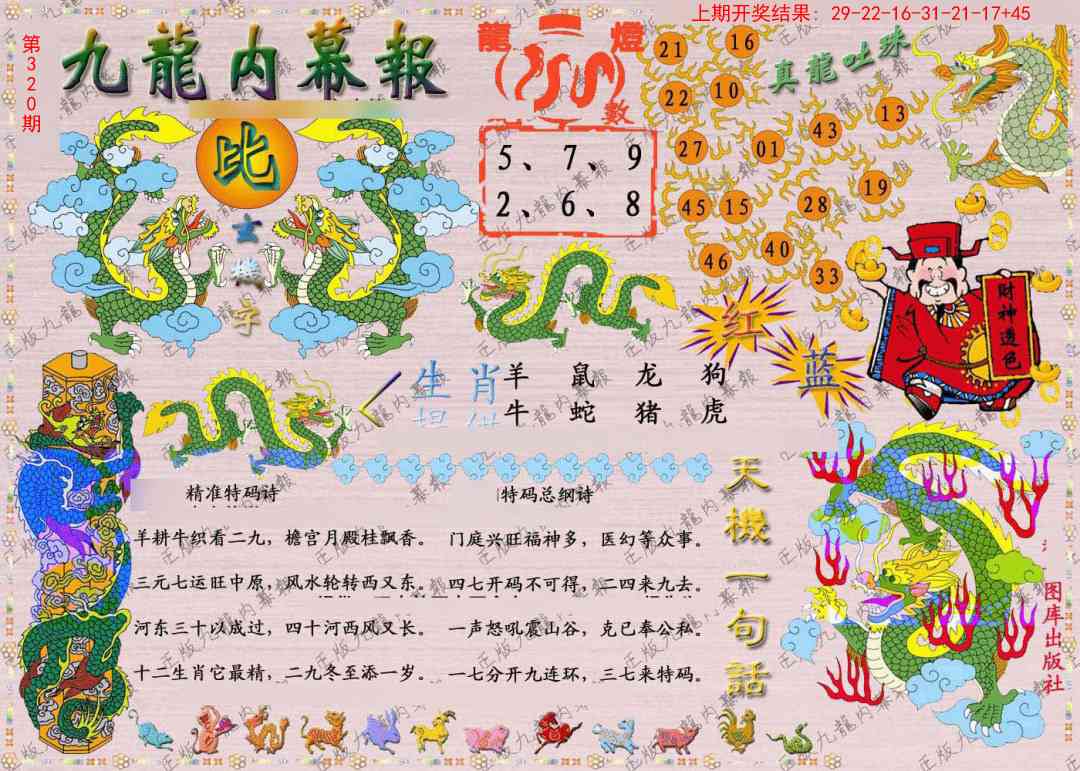 上期开奖结果：29-22-16-31-21-17+45
第320期
九龍内幕報
龍燈
數
5、7、9
2、6、8
真龍吐珠
21 16
22 10
27 01 43 13
45 15 28 19
46 40 33
比
玄
機
字
红
蓝
财神透色
生肖
羊 鼠 龙 狗
牛 蛇 猪 虎
精准特码诗
羊耕牛织看二九，檐宫月殿桂飘香。
三元七运旺中原，风水轮转西又东。
河东三十以成过，四十河西风又长。
十二生肖它最精，二九冬至添一岁。
特码总纲诗
门庭兴旺福神多，医幻等众事。
四七开码不可得，二四来九去。
一声怒吼震山谷，克已奉公私。
一七分开九连环，三七来特码。
天機一句話
图库出版社
正版九龍内幕報